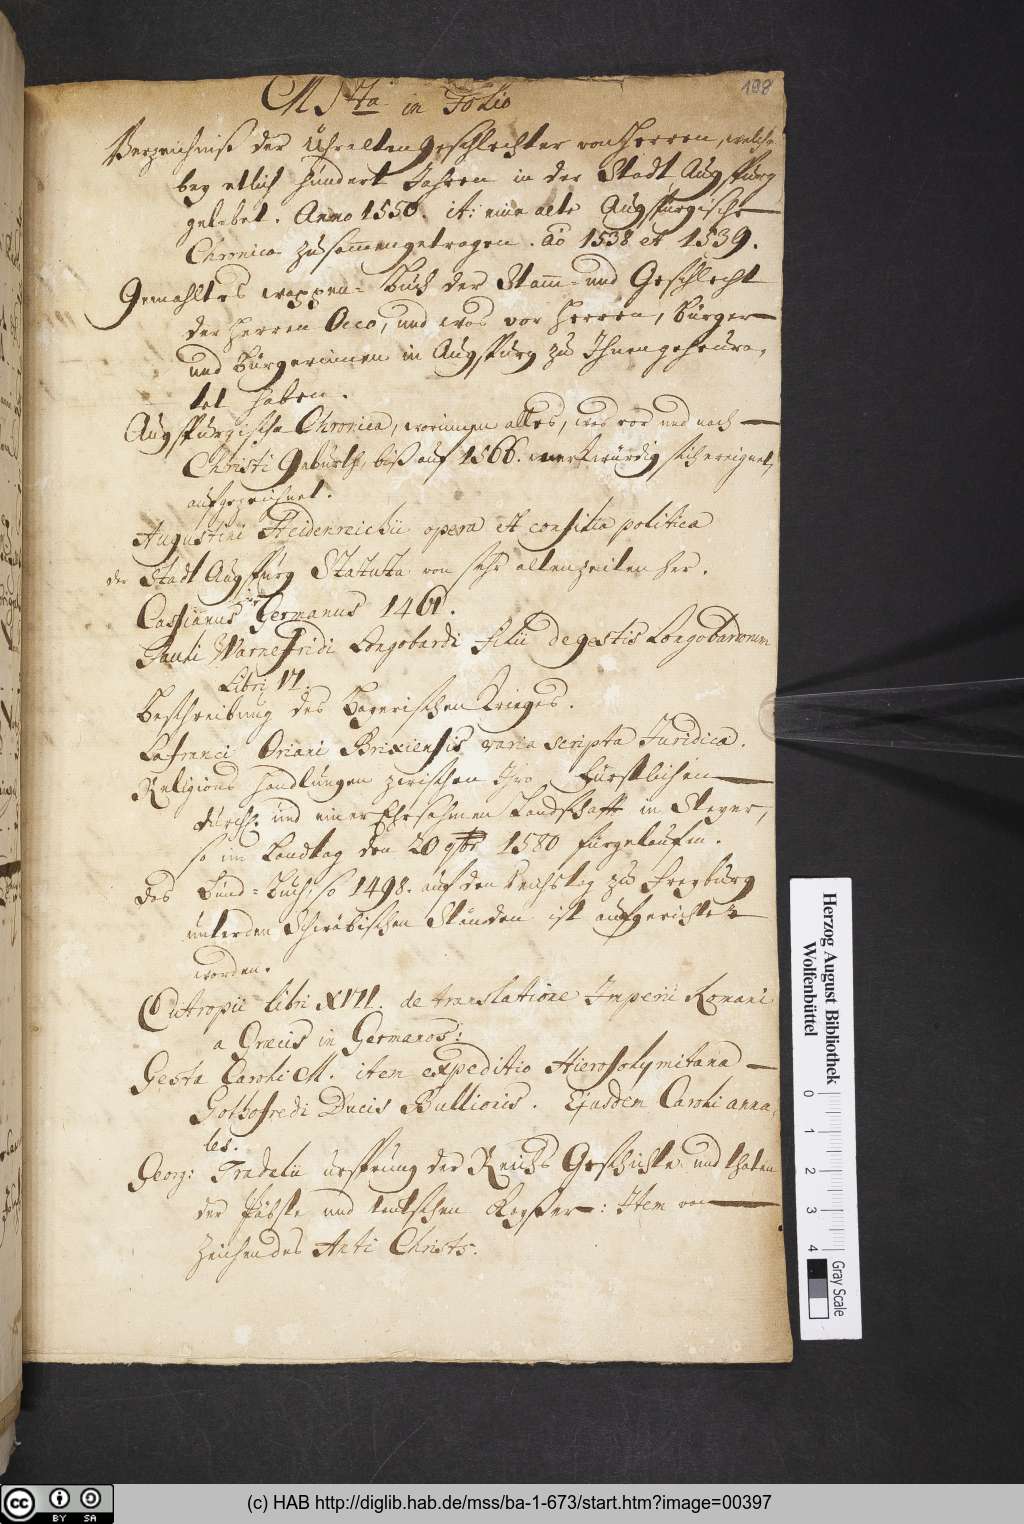 198
MSta in Folio
Verzeichniß der Uhralten Geschlechter von Herren, welche
bey etlich hundert Jahren in der Stadt Augspurg
gelebet. Anno 1550. it: eine alte Augspurgische
Chronica zusamengetragen. Ao 1538 et 1539.
Gemahltes wappen-Buch der Stam- und Geschlecht
der Herren Occo, und was vor Herren, Bürger
und Bürgerinnen in Augspurg zu Ihnen geheura,
tet haben.
Augspurgische Chronica, worinnen alles, was vor und nach
Christi Geburth biß auf 1566. merkwürdig sich ereignet,
aufgezeichnet.
Augustini Heidenreichii opera et consilia politica
der Stadt Augspurg Statuta von sehr alten zeiten her.
Cassianus Germanus 1461.
Pauli Warnefridi Longobardi filii de gestis Longobardorum
Libri VI.
Beschreibung des Bayerischen Krieges.
Lafranci Oriani Brixiensis varia scripta Juridica.
Religions Handlungen zwischen Ihro Fürstlichen
Durchl. und einer Ehrsahmen Landschafft in Steyer,
so im Landtag den 20 9br 1580 fürgelaufen.
Des Bund-Buch, so 1498. auf den Reichstag zu Freyburg
unter den Schwäbischen Ständen ist aufgerichtet
worden.
Eutropii libri XVII. de translatione Imperii Romani
a Græcis in Germanos:
Gesta Caroli M. item expeditio Hierosolymitana
Gothofredi Ducis Bullionis. Ejusdem Caroli anna,
les.
Georg: Tradelii ursprung der Reichs Geschichte und thaten
der Päbste und teutschen Kayser: Item von
Zeichen des Anti Christs.
Herzog August Bibliothek
Wolfenbüttel
0 1 2 3 4
Gray Scale
cc BY SA
(c) HAB http://diglib.hab.de/mss/ba-1-673/start.htm?image=00397